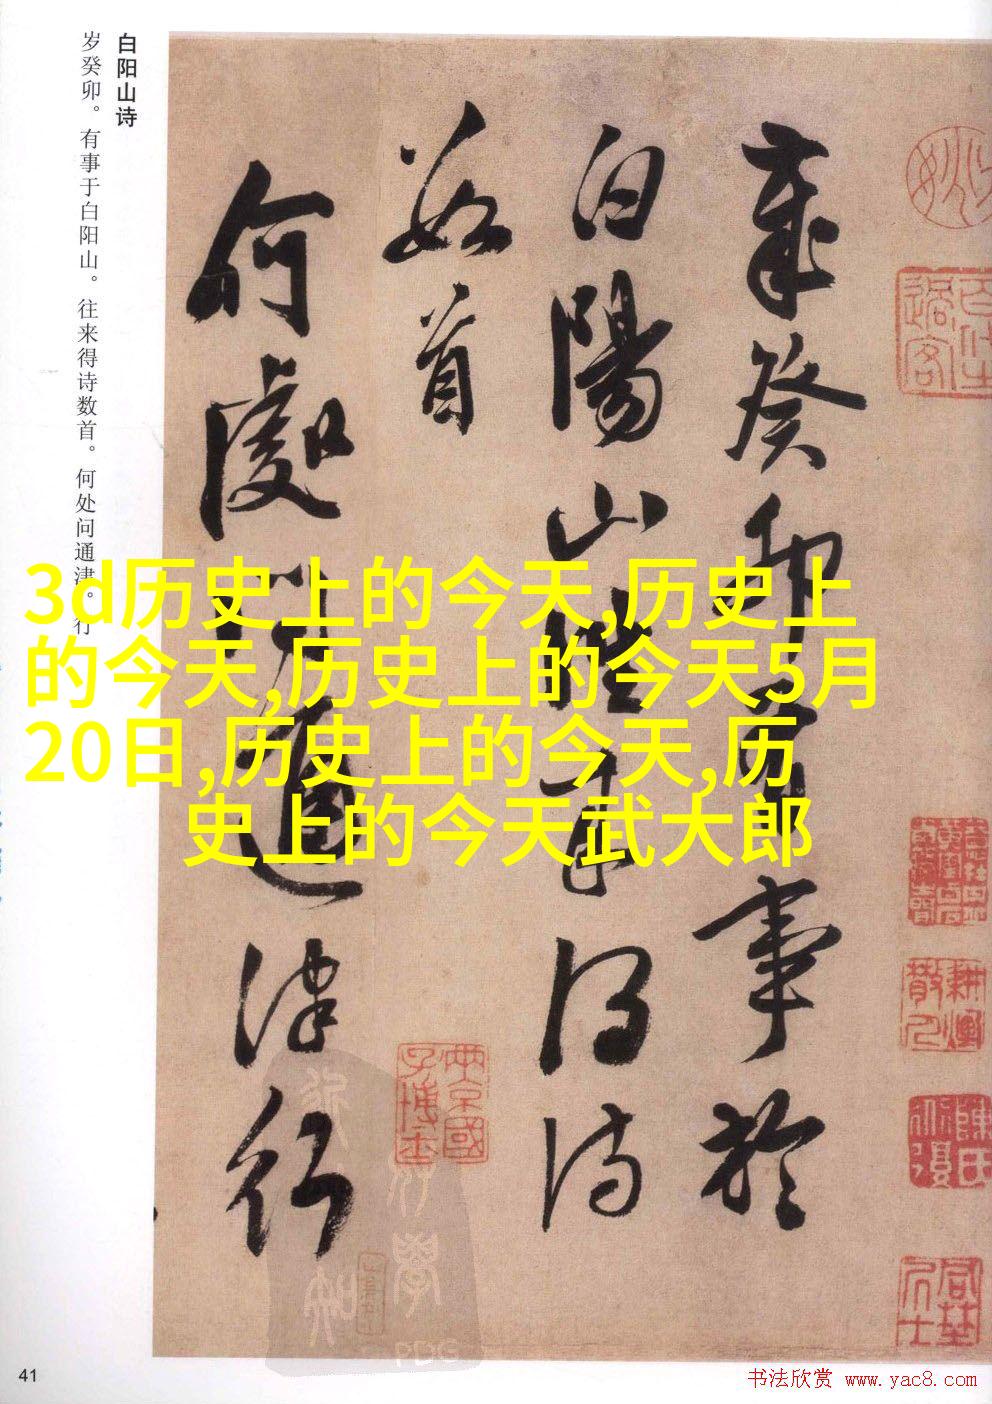 白阳山诗
岁癸卯。有事于白阳山。往来得诗数首。何处问通津。行
歲癸卯有事於
白陽山往来得诗
数首
何處问通津行
3d历史上的今天,历史上
的今天,历史上的今天5月
20日,历史上的今天,历
史上的今天武大郎
41
书法欣赏 www.yac8.com